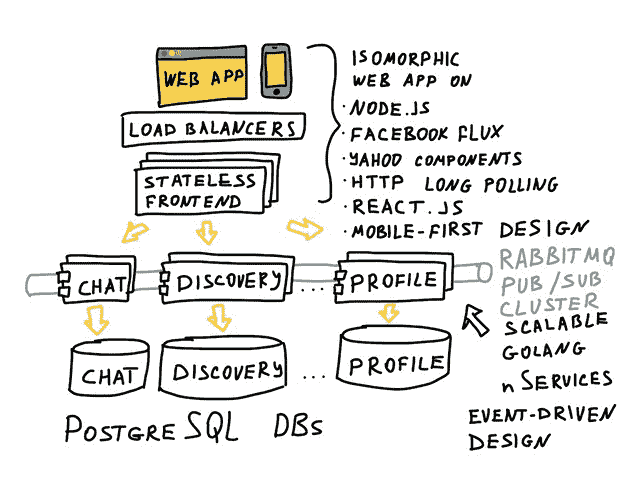 WEB APP
LOAD BALANCERS
STATELESS
FRONTEND
ISOMORPHIC
WEB APP ON
· NODE.JS
· FACEBOOK FLUX
· YAHOO COMPONENTS
· HTTP LONG POLLING
· REACT.JS
· MOBILE-FIRST DESIGN
CHAT
DISCOVERY
...
PROFILE
RABBITMQ
PUB/SUB
CLUSTER
SCALABLE
GOLANG
n SERVICES
EVENT-DRIVEN
DESIGN
CHAT
DISCOVERY
...
PROFILE
POSTGRE SQL DBs